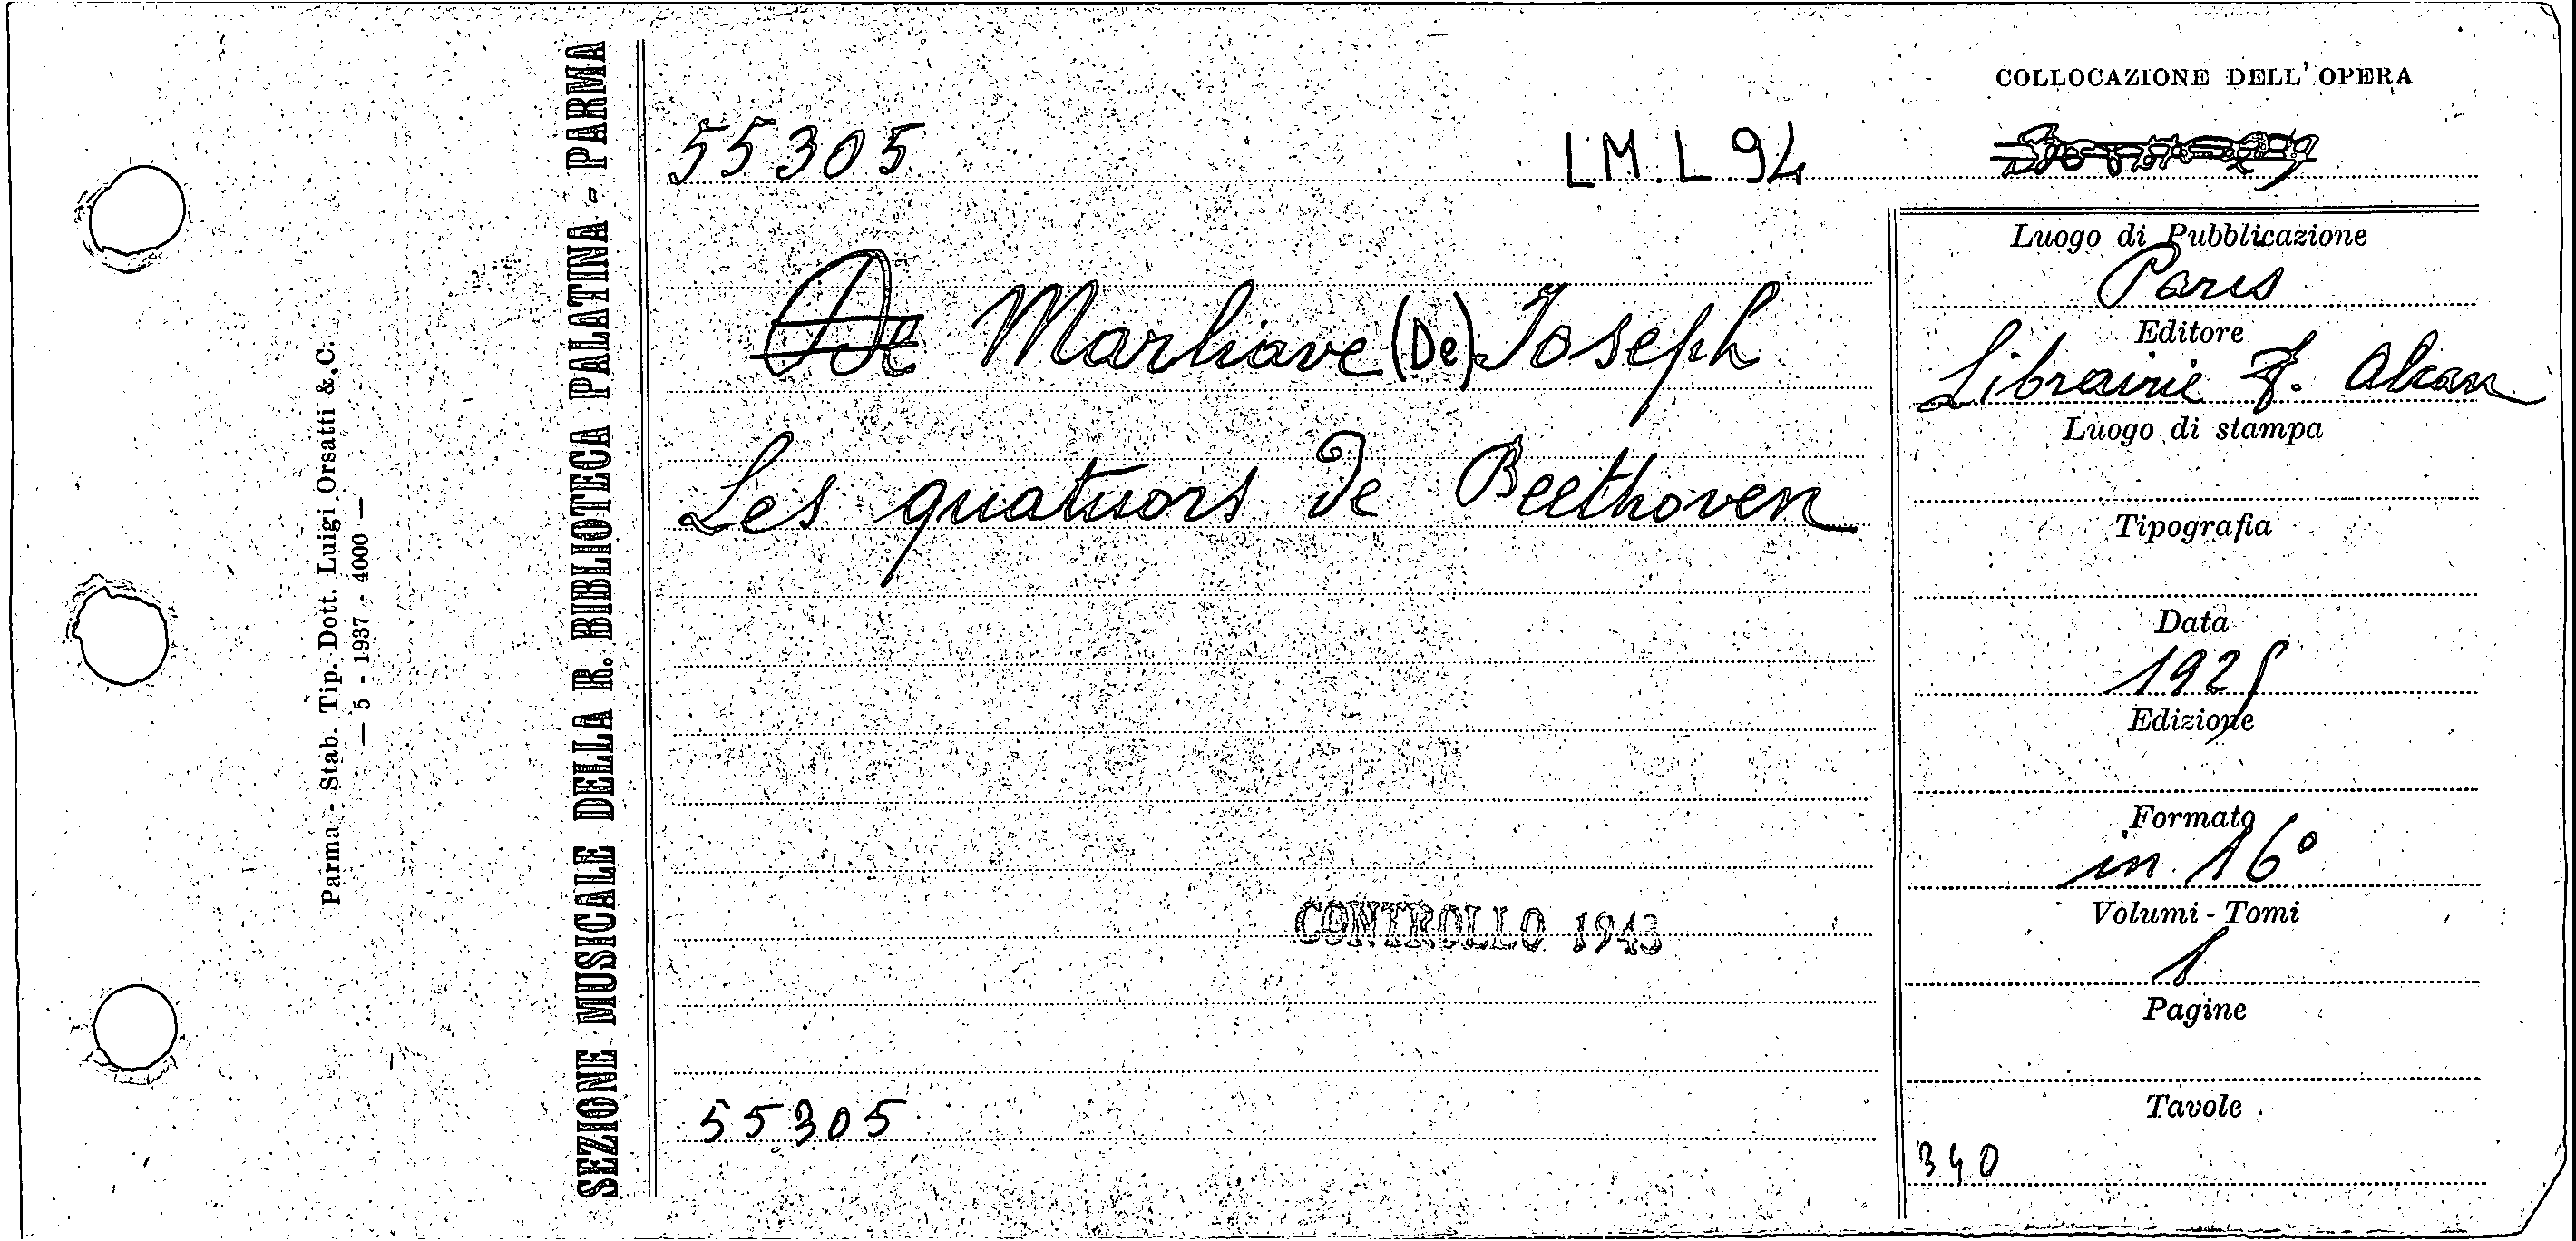 COLLOCAZIONE DELL' OPERA
55305 LM. L. 94
De Marliave (De) Joseph
Les quatuors de Beethoven
CONTROLLO 1943
55305
Luogo di Pubblicazione
Paris
Editore
Librairie F. Alcan
Luogo di stampa
Tipografia
Data
1925
Edizione
Formato
in 16°
Volumi - Tomi
1
Pagine
Tavole
340
SEZIONE MUSICALE DELLA R. BIBLIOTECA PALATINA - PARMA
Parma - Stab. Tip. Dott. Luigi Orsatti & C.
— 5 - 1937 - 4000 —